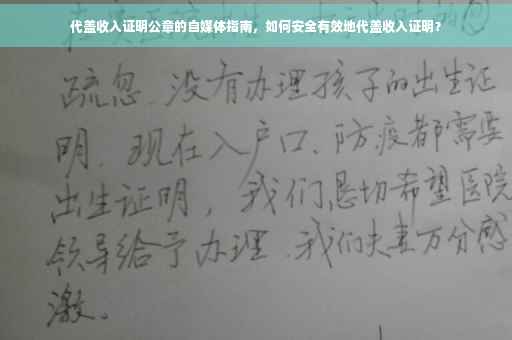 代盖收入证明公章的自媒体指南，如何安全有效地代盖收入证明？
疏忽、没有办理孩子的出生证
明、现在入户口、防疫都需要
出生证明，我们恳切希望医院
领导给予办理、我们夫妻万分感
激。